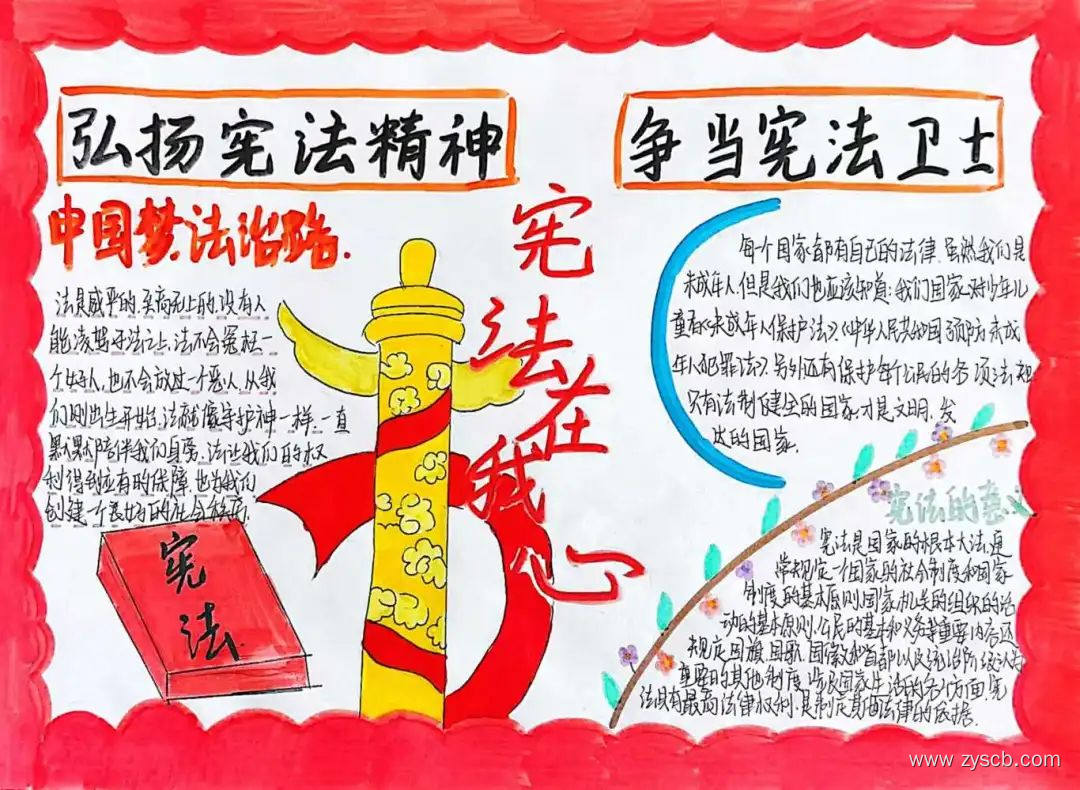 弘扬宪法精神
争当宪法卫士
中国梦.法治路.
宪法在我心
法是威严的.至高无上的.没有人
能凌驾于法之上.法不会冤枉一
个好人.也不会放过一个恶人.从我
们刚出生开始.法就像守护神一样.一直
默默陪伴我们身旁.法让我们的权
利得到应有的保障.也为我们
创建一个良好的社会
宪法
每个国家都有自己的法律.虽然我们是
未成年人.但是我们也应该知道:我们国家对少年儿
童有《未成年人保护法》《中华人民共和国预防未成
年人犯罪法》.另外还有保护每个公民的各项法规
只有法制健全的国家.才是文明.发
达的国家.
宪法的意义
宪法是国家的根本大法.通
常规定一个国家的社会制度和国家
制度的基本原则.国家机关的组织的活
动的基本原则.公民的基本和义务等重要内容.还
规定国旗.国歌.国徽和首都以及统治阶级认为
重要的其他制度.涉及国家生活的各个方面.宪
法具有最高法律权利.是制定其他法律的依据.
www.zyscb.com